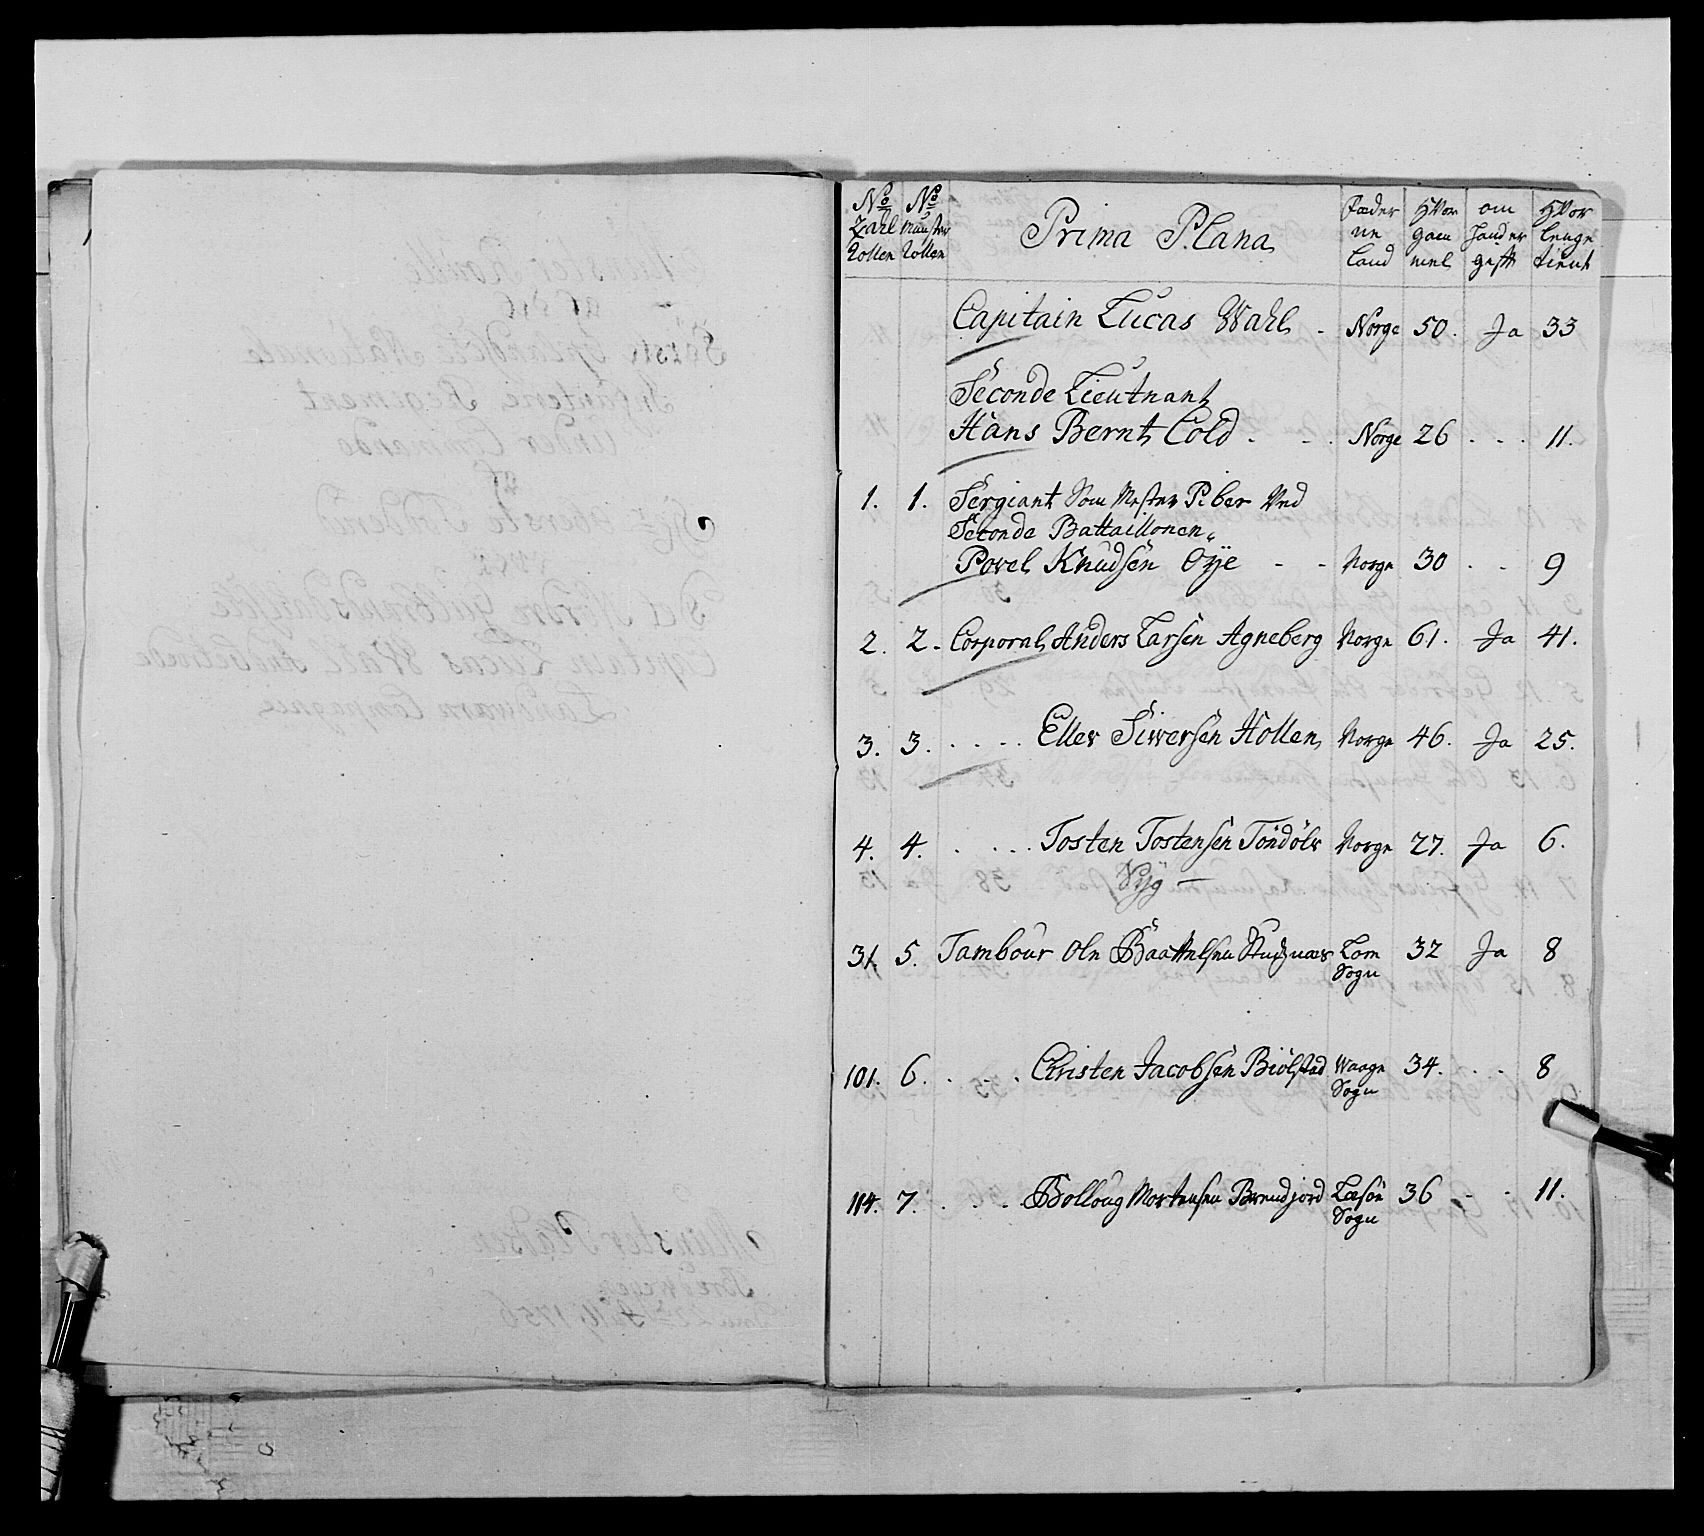 No Zahl Rollen | No Munster Rollen | Prima Plana | Fæder ne Land | Hvor gam mel | om hand er gift | Hvor lenge tient
Capitain Lucas Wahl - | Norge | 50. | Ja | 33
Seconde Lieutnant
Hans Bernt Cold - - - | Norge | 26 | - - - | 11.
1. | 1. | Sergiant Som Mester Piber Ved
Seconde Battaillonen
Povel Knudsen Oÿe - - | Norge | 30 | - - | 9
2. | 2. | Corporal Anders Larsen Agneberg | Norge | 61. | Ja | 41.
3. | 3. | . . . . Ellev Siwersen Hollen | Norge | 46. | Ja | 25.
4. | 4. | . . . . Tosten Tostensen | Norge | 27. | Ja | 6.
Syg —
31. | 5. | Tambour Ole | Lom | 32 | Ja | 8
Sogn
101. | 6. | . . . . Christen Jacobsen Biölstad | Waage | 34. | . . . | 8
Sogn
114. | 7. | . . . . Bolloug Mortensen | Læsöe | 36 | - - | 11.
Sogn